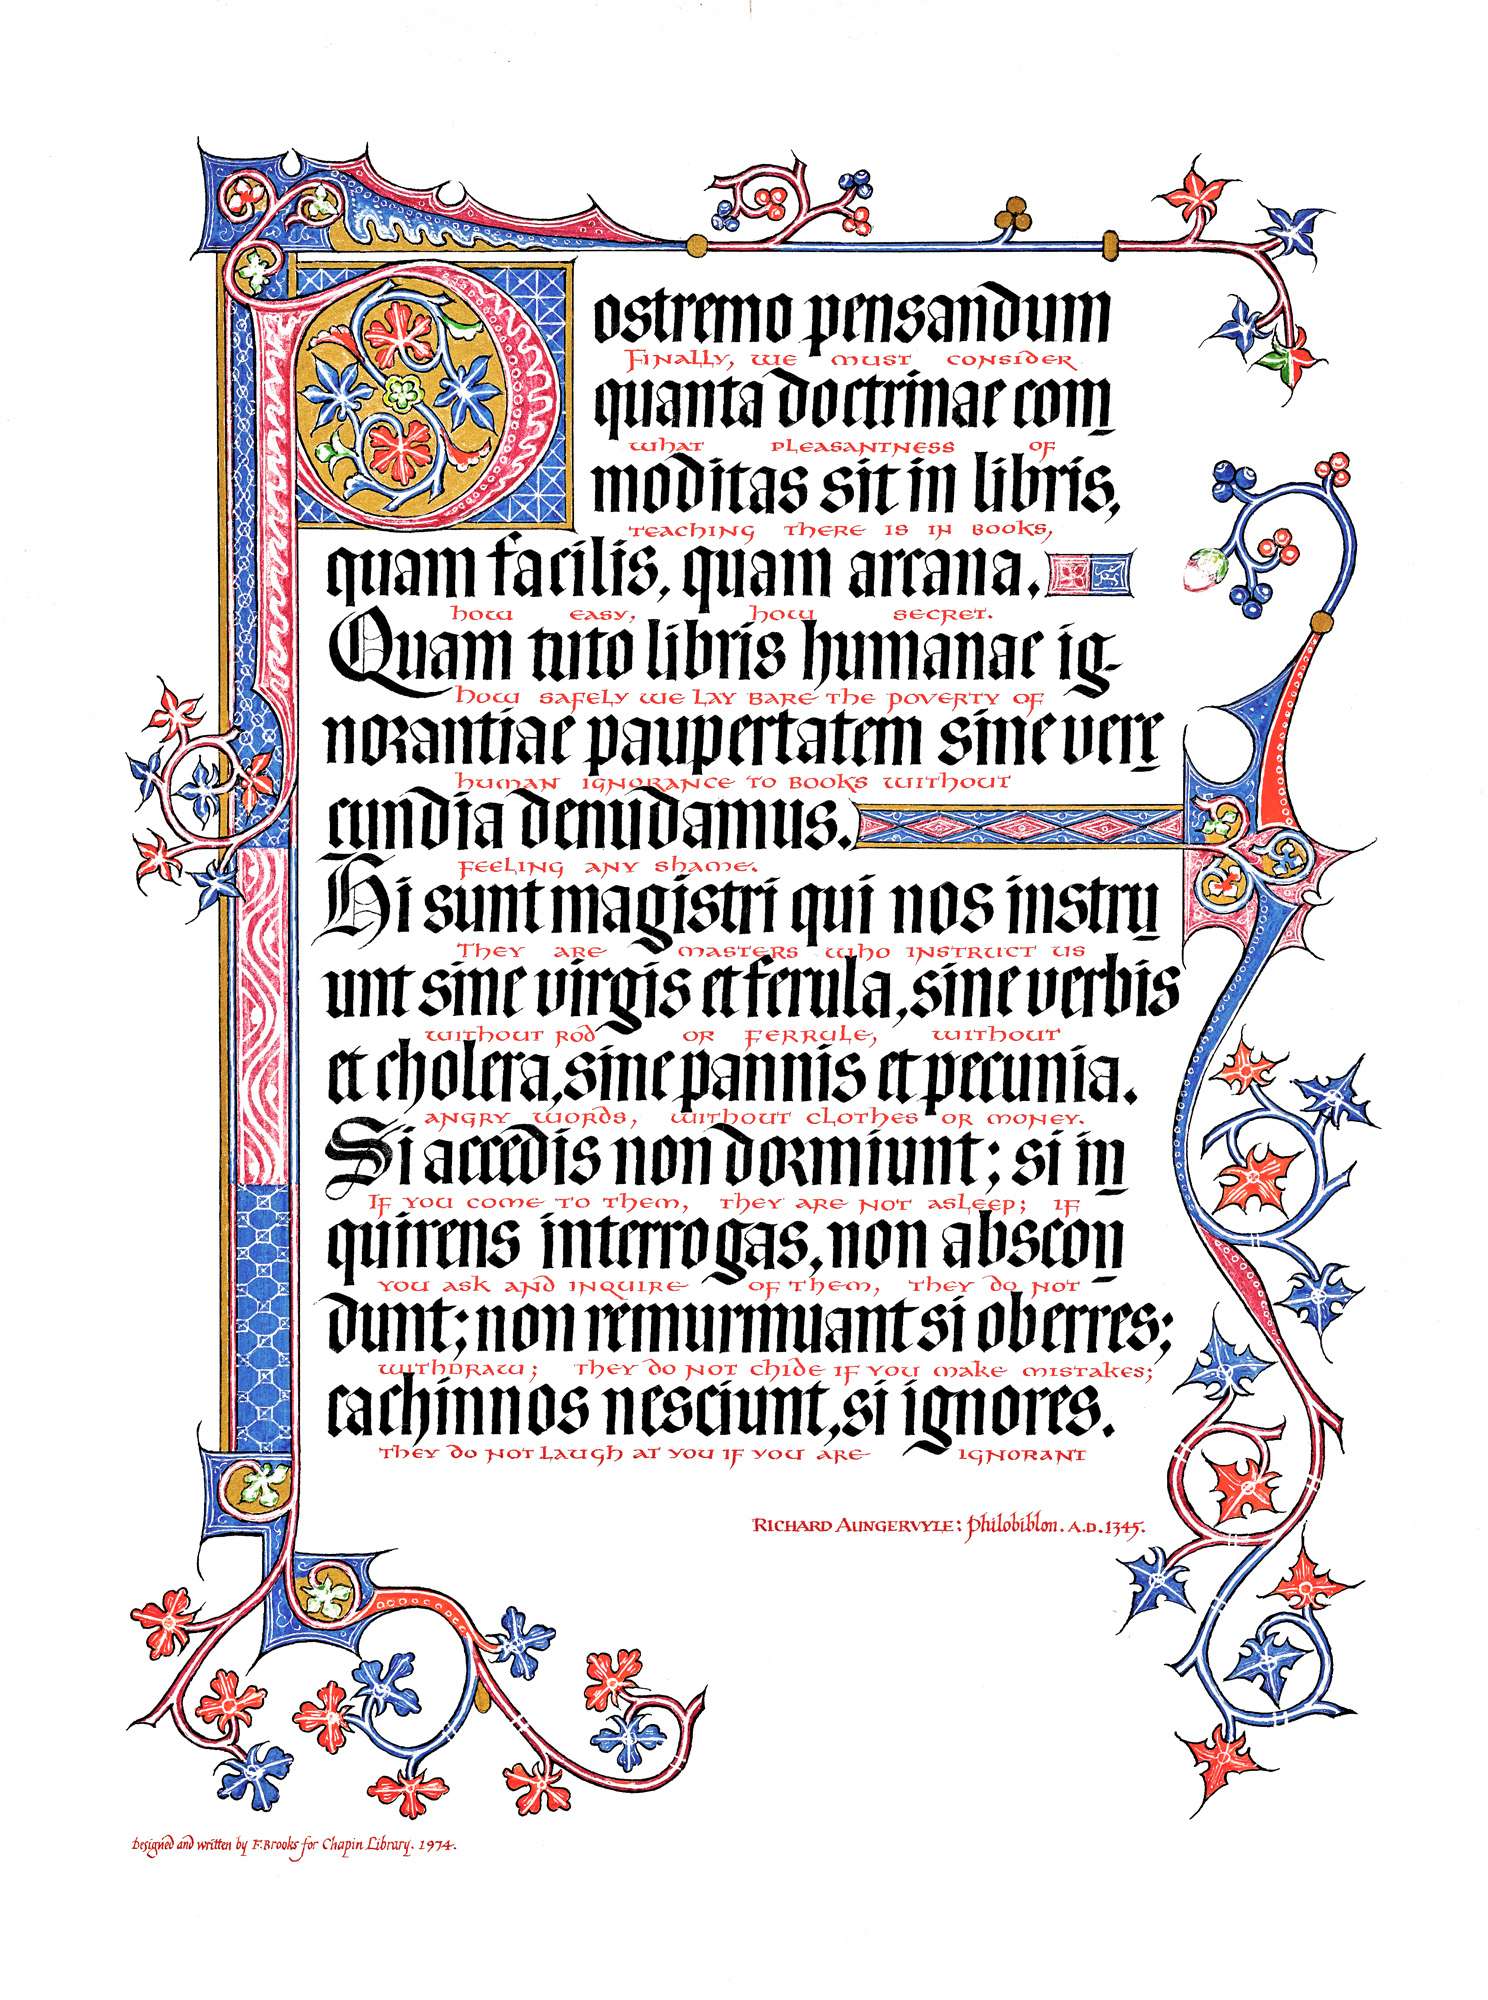 Postremo pensandum
Finally, we must consider
quanta doctrinae com
what pleasantness of
moditas sit in libris,
teaching there is in books,
quam facilis, quam arcana.
how easy, how secret.
Quam tuto libris humanae ig-
how safely we lay bare the poverty of
norantiae paupertatem sine vere
human ignorance to books without
cundia denudamus.
feeling any shame.
Hi sunt magistri qui nos instru
They are masters who instruct us
unt sine virgis et ferula, sine verbis
without rod or ferrule, without
et cholera, sine pannis et pecunia.
angry words, without clothes or money.
Si accedis non dormiunt; si in
If you come to them, they are not asleep; if
quirens interrogas, non abscon
you ask and inquire of them, they do not
dunt; non remurmuant si oberres;
withdraw; they do not chide if you make mistakes;
cachinnos nesciunt, si ignores.
they do not laugh at you if you are ignorant
Richard Aungervyle: Philobiblon. A.D. 1345.
Designed and written by F. Brooks for Chapin Library. 1974.